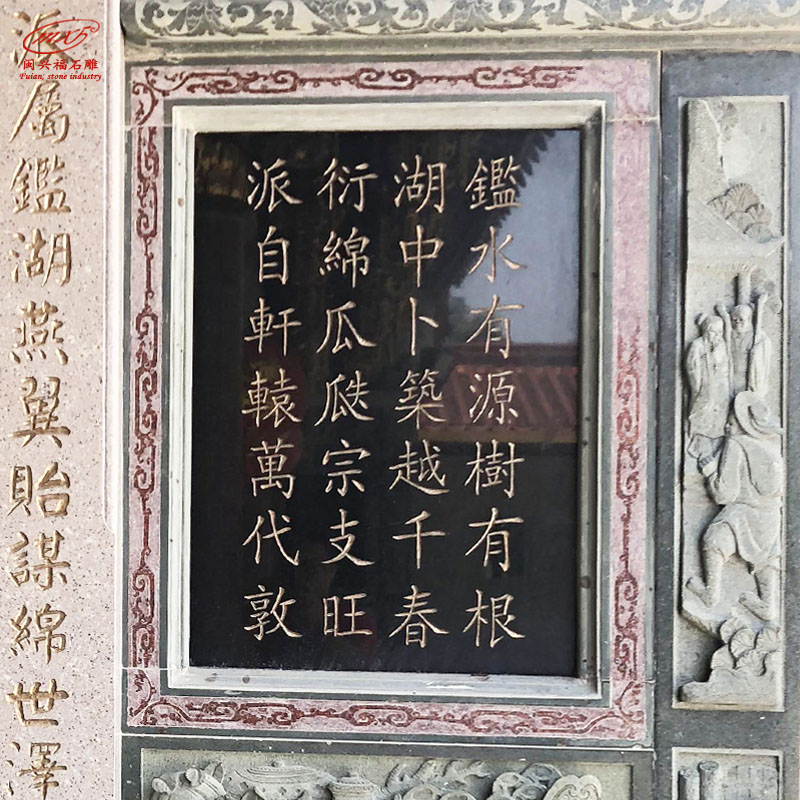 鑑水有源樹有根
湖中卜築越千春
衍綿瓜瓞宗支旺
派自軒轅萬代敦
派屬鑑湖燕翼貽謀綿世澤
闽兴福石雕
Fuian, stone industry